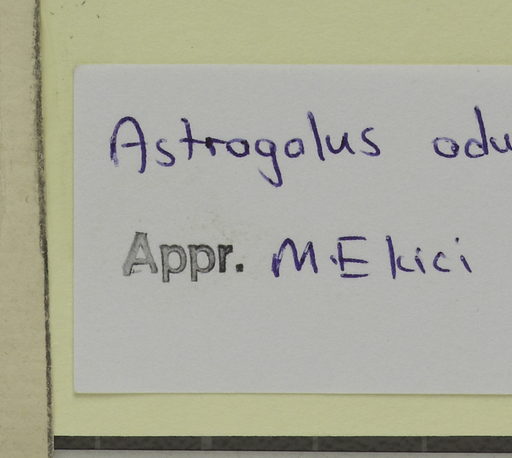 Astragalus odu
Appr. M.Ekici